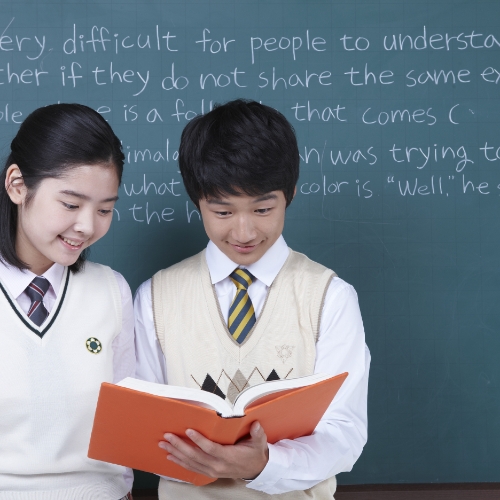 ery difficult for people to understa
ther if they do not share the same ex
ple is a fol that comes (
imala an was trying to
what color is "Well," he
n the h